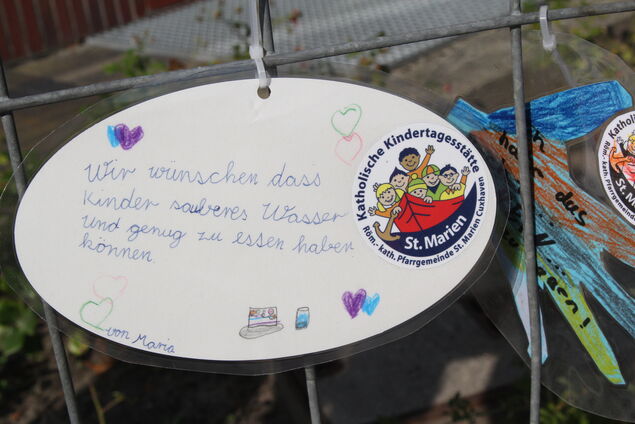 Wir wünschen dass
Kinder sauberes Wasser
und genug zu essen haben
können.
von Maria
Katholische Kindertagesstätte
St. Marien
Röm.- kath. Pfarrgemeinde St. Marien Cuxhaven
ich
habe das
Katholische
Röm.- kath. Pfarrgemeinde